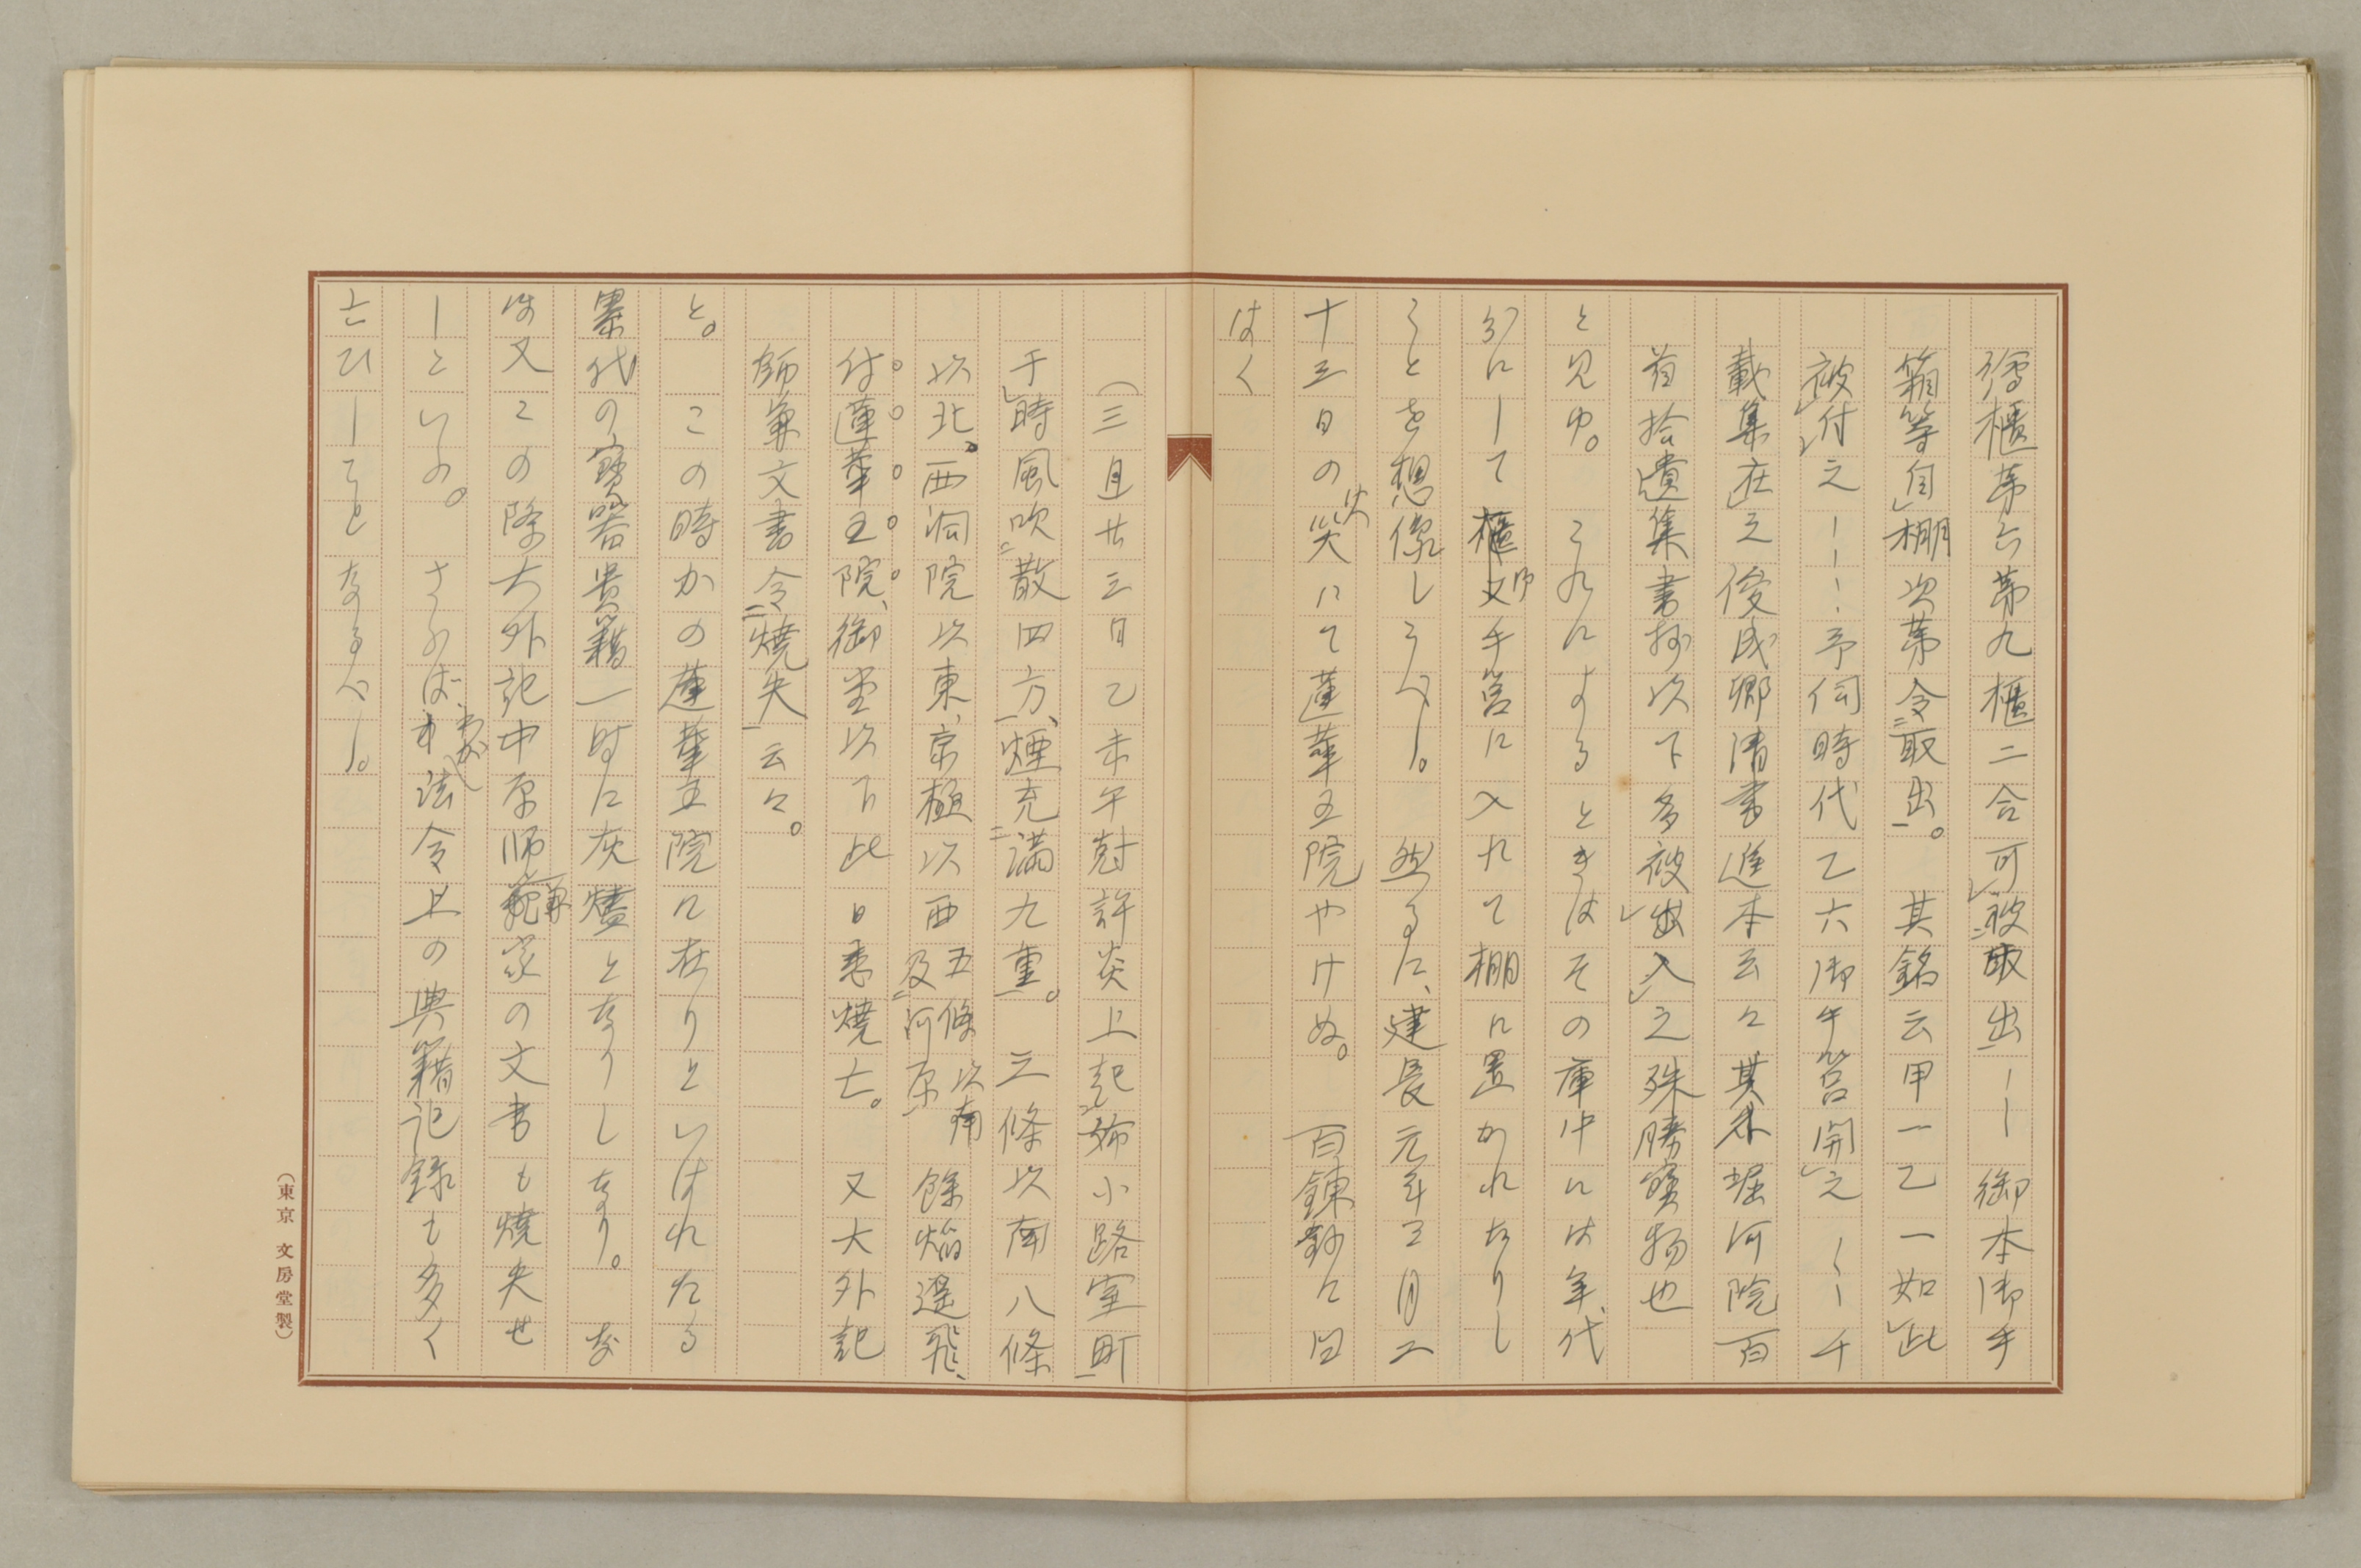 櫃第六第九櫃二合可被取出ーー御本御手
箱等自棚次第令取出。其銘云甲一乙一如此
被付之ーー、予伺時代乙六御手筥開之ーー千
載集在之俊成卿清書進本云々其外堀河院百
首拾遺集書抄以下多被出入之殊勝寳物也
と見ゆ。これによるときはその庫中には年代
別にして櫃又手筥に入れて棚に置かれたりし
ことを想像しうべし。然るに、建長元年三月二
十三日の火災にて蓮華王院やけぬ。百錬鈔に曰
はく
(三月廿三日乙未午尅許炎上起姉小路室町
于時風吹散四方、煙充満九重。三條以南八條
以北。西洞院以東、京極以西
五條以南
及河原
餘焔遥飛、
付蓮華王院、御堂以下此日悉焼亡。又大外記
師兼文書令焼失云々。
と。この時かの蓮華王院に在りといはれたる
累代の寳器貴籍一時に灰燼となりしなり。な
ほ又この際大外記中原師兼家の文書も焼失せ
しといふ。さらば、わが法令上の典籍記録も多く
亡ひしことなるべし。
(東京 文房堂製)